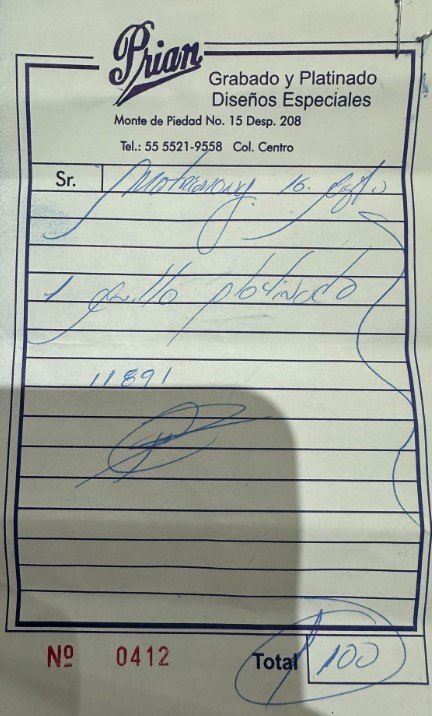 Prian
Grabado y Platinado
Diseños Especiales
Monte de Piedad No. 15 Desp. 208
Tel.: 55 5521-9558 Col. Centro
Sr. 16
1 anillo platinado
11891
Nº 0412
Total 100